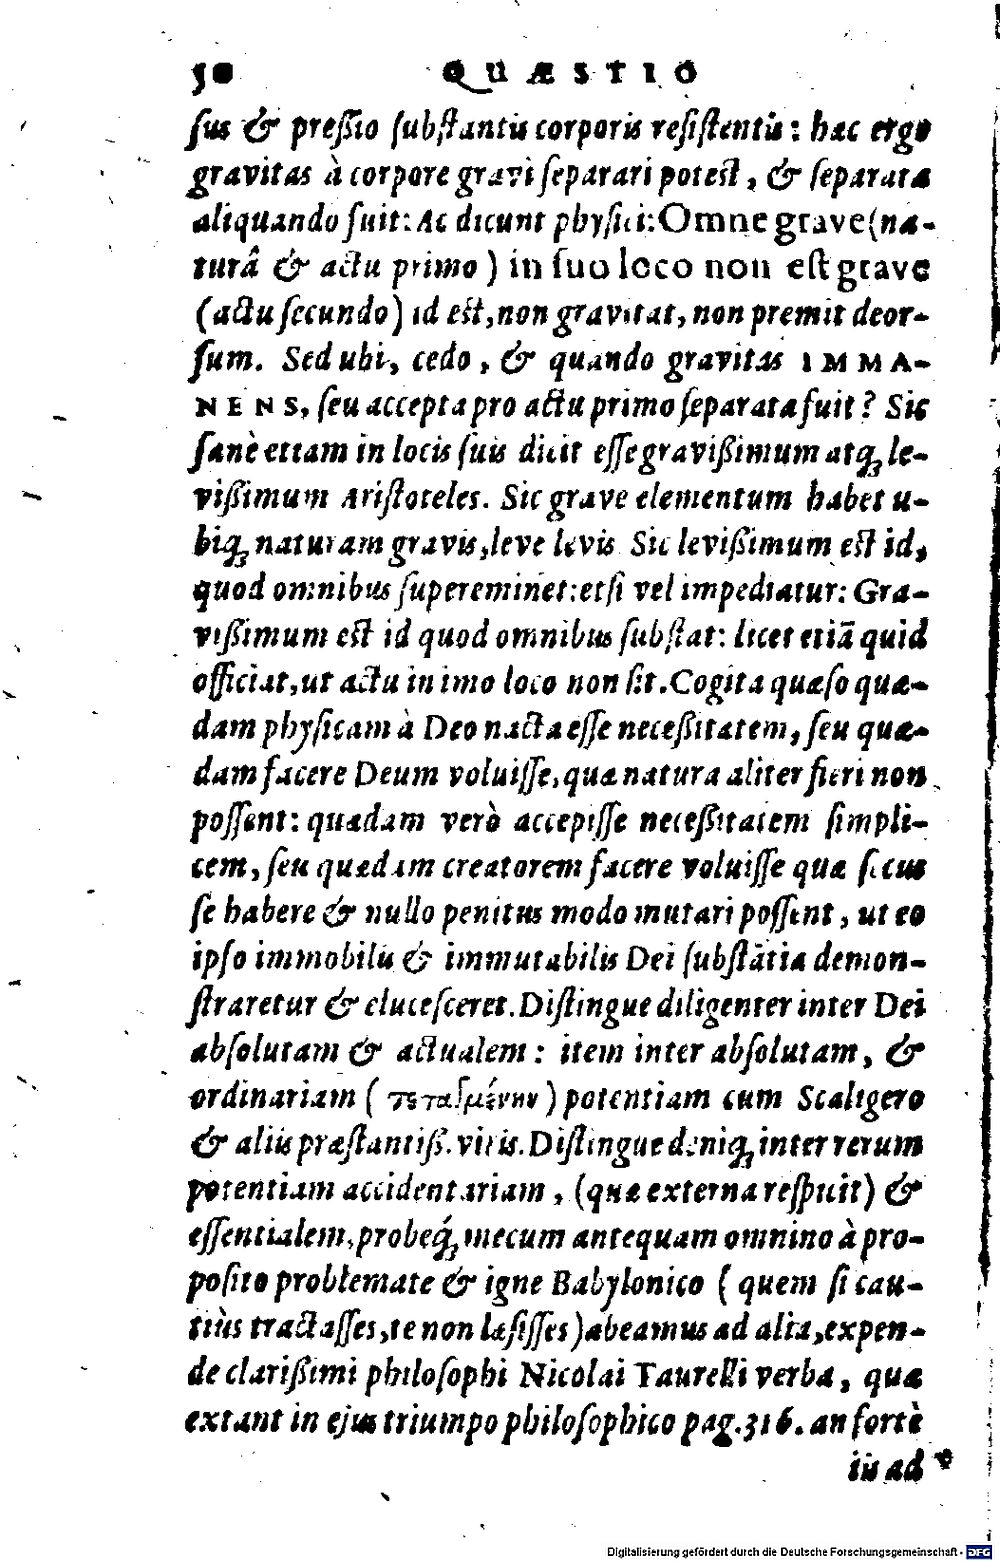 50 QUÆSTIO
sus & pressio substantis corporis resistentis: hæc ergo
gravitas à corpore gravi separari potest, & separata
aliquando fuit: Ac dicunt physici: Omne grave (na-
turâ & actu primo) in suo loco non est grave
(actu secundo) id est, non gravitat, non premit deor-
sum. Sed ubi, cedo, & quando gravitas IMMA-
NENS, seu accepta pro actu primo separata fuit? Sic
sanè etiam in locis suis dicit esse gravissimum atq; le-
vissimum Aristoteles. Sic grave elementum habet u-
biq; naturam gravis, leve levis Sic levissimum est id,
quod omnibus supereminet: etsi vel impediatur: Gra-
vissimum est id quod omnibus substat: licet etiã quid
officiat, ut actu in imo loco non sit. Cogita quæso quæ-
dam physicam à Deo nacta esse necessitatem, seu quæ-
dam facere Deum voluisse, quæ natura aliter fieri non
possent: quædam verò accepisse necessitatem simpli-
cem, seu quædam creatorem facere voluisse quæ secus
se habere & nullo penitus modo mutari possent, ut eo
ipso immobilis & immutabilis Dei substãtia demon-
straretur & elucesceret. Distingue diligenter inter Dei
absolutam & actualem: item inter absolutam, &
ordinariam (τεταγμένην) potentiam cum Scaligero
& aliis præstantiss. viris. Distingue deniq; inter rerum
potentiam accidentariam, (quæ externa respicit) &
essentialem, probeq́; mecum antequam omnino à pro-
posito problemate & igne Babylonico (quem si cau-
tiùs tractasses, te non læsisses) abeamus ad alia, expen-
de clarissimi philosophi Nicolai Taurelli verba, quæ
extant in ejus triumpo philosophico pag. 316. an fortè
iis ad
Digitalisierung gefördert durch die Deutsche Forschungsgemeinschaft - DFG